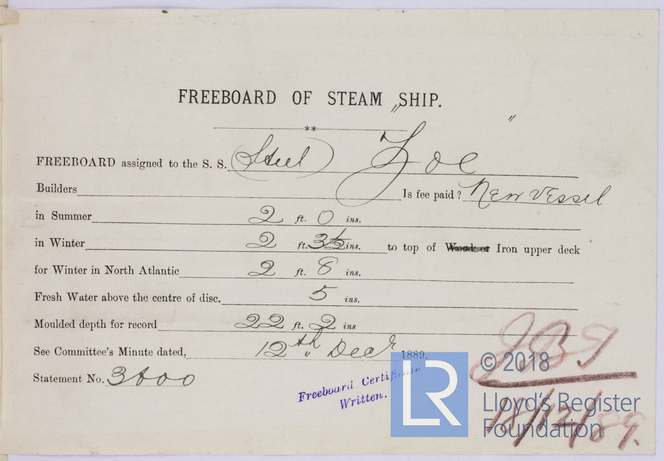 FREEBOARD OF STEAM „SHIP. "
**
FREEBOARD assigned to the S. S. (Steel) Zoe
Builders Is fee paid? New vessel
in Summer 2 ft. 0 ins.
in Winter 2 ft. 3½ ins. to top of Wood or Iron upper deck
for Winter in North Atlantic 2 ft. 8 ins.
Fresh Water above the centre of disc. 5 ins.
Moulded depth for record 22 ft. 2 ins
See Committee's Minute dated, 12th Decr 1889.
Statement No. 3600
Freeboard Certificate
Written.
LR
© 2018
Lloyd's Register
Foundation
18/12/89.